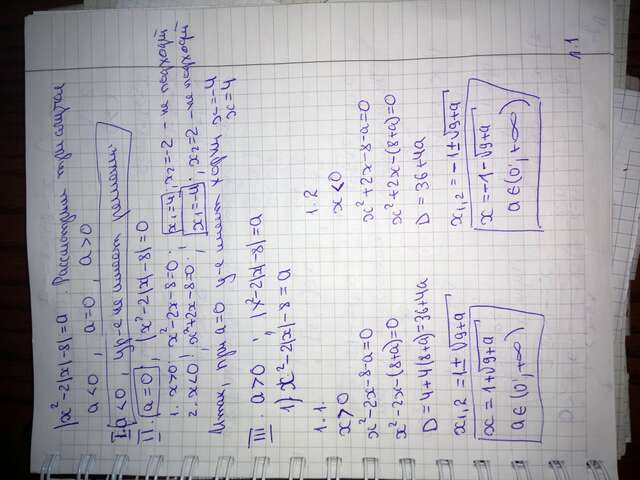 |x²-2|x|-8|=a. Рассмотрим три случая
a<0, a=0, a>0
I. a<0, ур-е не имеет решений.
II. a=0, |x²-2|x|-8|=0
1. x>0; x²-2x-8=0; x₁=4; x₂=-2 - не подходит
2. x<0; x²+2x-8=0; x₁=-4; x₂=2 - не подходит
Итак, при a=0 ур-е имеет корни x=-4
x=4
III. a>0, |x²-2|x|-8|=a
1) x²-2|x|-8=a
1.1.
x>0
x²-2x-8-a=0
x²-2x-(8+a)=0
D=4+4(8+a)=36+4a
x₁,₂=1±√9+a
x=1+√9+a
a∈(0;+∞)
1.2
x<0
x²+2x-8-a=0
x²+2x-(8+a)=0
D=36+4a
x₁,₂=-1±√9+a
x=-1-√9+a
a∈(0;+∞)
л.1